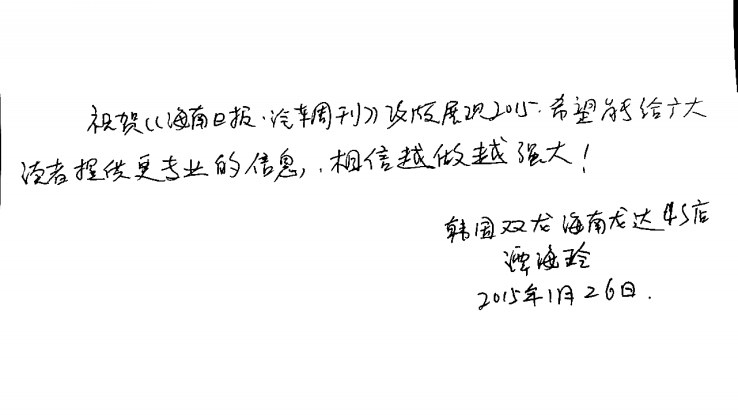 祝贺《海南日报·汽车周刊》改版展现2015.希望能给广大
读者提供更专业的信息,相信越做越强大!
韩国双龙海南龙达4S店
海玲
2015年1月26日.